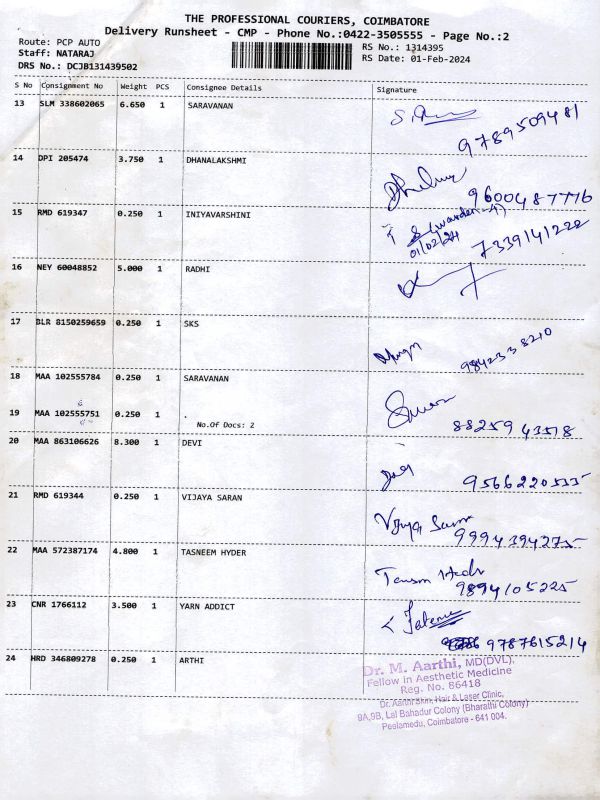 THE PROFESSIONAL COURIERS, COIMBATORE
Delivery Runsheet - CMP - Phone No.:0422-3505555 - Page No.:2
Route: PCP AUTO
Staff: NATARAJ
DRS No.: DCJB131439502
RS No.: 1314395
RS Date: 01-Feb-2024
S No Consignment No Weight PCS Consignee Details Signature
13 SLM 338602065 6.650 1 SARAVANAN
9789509481
14 DPI 205474 3.750 1 DHANALAKSHMI
9600487776
15 RMD 619347 0.250 1 INIYAVARSHINI
01/02/24 7339141222
16 NEY 60048852 5.000 1 RADHI
17 BLR 8150259659 0.250 1 SKS
9842338210
18 MAA 102555784 0.250 1 SARAVANAN
19 MAA 102555751 0.250 1 .
No.Of Docs: 2
88259 43518
20 MAA 863106626 8.300 1 DEVI
9566220535
21 RMD 619344 0.250 1 VIJAYA SARAN
9994394275
22 MAA 572387174 4.800 1 TASNEEM HYDER
9894105225
23 CNR 1766112 3.500 1 YARN ADDICT
9787615214
24 HRD 346809278 0.250 1 ARTHI
Dr. M. Aarthi, MD(DVL),
Fellow in Aesthetic Medicine
Reg. No. 86418
Dr. Aarthi Skin, Hair & Laser Clinic,
9A,9B, Lal Bahadur Colony (Bharathi Colony)
Peelamedu, Coimbatore - 641 004.